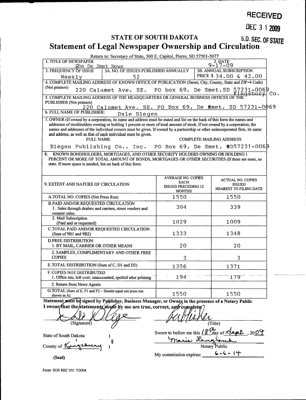 RECEIVED
DEC 31 2009
S.D. SEC. OF STATE
STATE OF SOUTH DAKOTA
Statement of Legal Newspaper Ownership and Circulation
Return to: Secretary of State, 500 E. Capitol, Pierre, SD 57501-5077
1. TITLE OF NEWSPAPER
The De Smet News
2. DATE
9-17-09
3. FREQUENCY OF ISSUE
Weekly
3A. NO. OF ISSUES PUBLISHED ANNUALLY
52
3B. ANNUAL SUBSCRIPTION
PRICE $ 34.00 & 42.00
4. COMPLETE MAILING ADDRESS OF KNOWN OFFICE OF PUBLICATION (Street, City, County, State and ZIP+4 Code)
(Not printers)
220 Calumet Ave. SE. PO Box 69, De Smet, SD 57231-0069
Kingsbury Co.
5. COMPLETE MAILING ADDRESS OF THE HEADQUARTERS OR GENERAL BUSINESS OFFICES OF THE
PUBLISHER (Not printer)
220 Calumet Ave. SE. PO Box 69, De Smet, SD 57231-0069
6. FULL NAME OF PUBLISHER:
Dale Blegen
7. OWNER (if owned by a corporation, its name and address must be stated and also on the back of this form the names and
addresses of stockholders owning or holding 1 percent or more of total amount of stock. If not owned by a corporation, the
names and addresses of the individual owners must be given. If owned by a partnership or other unincorporated firm, its name
and address, as well as that of individual must be given.
FULL NAME
COMPLETE MAILING ADDRESS
Blegen Publishing Co., Inc. PO Box 69, De Smet, SD57231-0069
8. KNOWN BONDHOLDERS, MORTGAGES, AND OTHER SECURITY HOLDERS OWNING OR HOLDING 1
PERCENT OR MORE OF TOTAL AMOUNT OF BONDS, MORTGAGES OR OTHER SECURITIES (If there are none, so
state. If more space is needed, list on back of this form).
9. EXTENT AND NATURE OF CIRCULATION
AVERAGE NO. COPIES
EACH
ISSUED PRECEDING 12
MONTHS
ACTUAL NO. COPIES
ISSUED
NEAREST TO FILING DATE
A. TOTAL NO. COPIES (Net Press Run) 1550 1550
B. PAID AND/OR REQUESTED CIRCULATION
1. Sales through dealers and carriers, street vendors and
counter sales. 304 339
2. Mail Subscription
(Paid and/or requested) 1029 1009
C. TOTAL PAID AND/OR REQUESTED CIRCULATION
(Sum of 9B1 and 9B2) 1333 1348
D. FREE DISTRIBUTION
1. BY MAIL, CARRIER OR OTHER MEANS 20 20
2. SAMPLES, COMPLIMENTARY AND OTHER FREE
COPIES 3 3
E. TOTAL DISTRIBUTION (Sum of C, D1 and D2) 1356 1371
F. COPIES NOT DISTRIBUTED
1. Office use, left over, unaccounted, spoiled after printing 194 179
2. Return from News Agents
G. TOTAL (Sum of E, F1 and F2 - Should equal net press run
shown in A) 1550 1550
Statement must be signed by Publisher, Business Manager, or Owner in the presence of a Notary Public
I swear that the statements made by me are true, correct, and complete:
(Signature)
Publisher
(Title)
State of South Dakota )
County of Kingsbury )
(Seal)
Sworn to before me this 18th day of Sept, 2009
Notary Public
My commission expires: 6-6-14